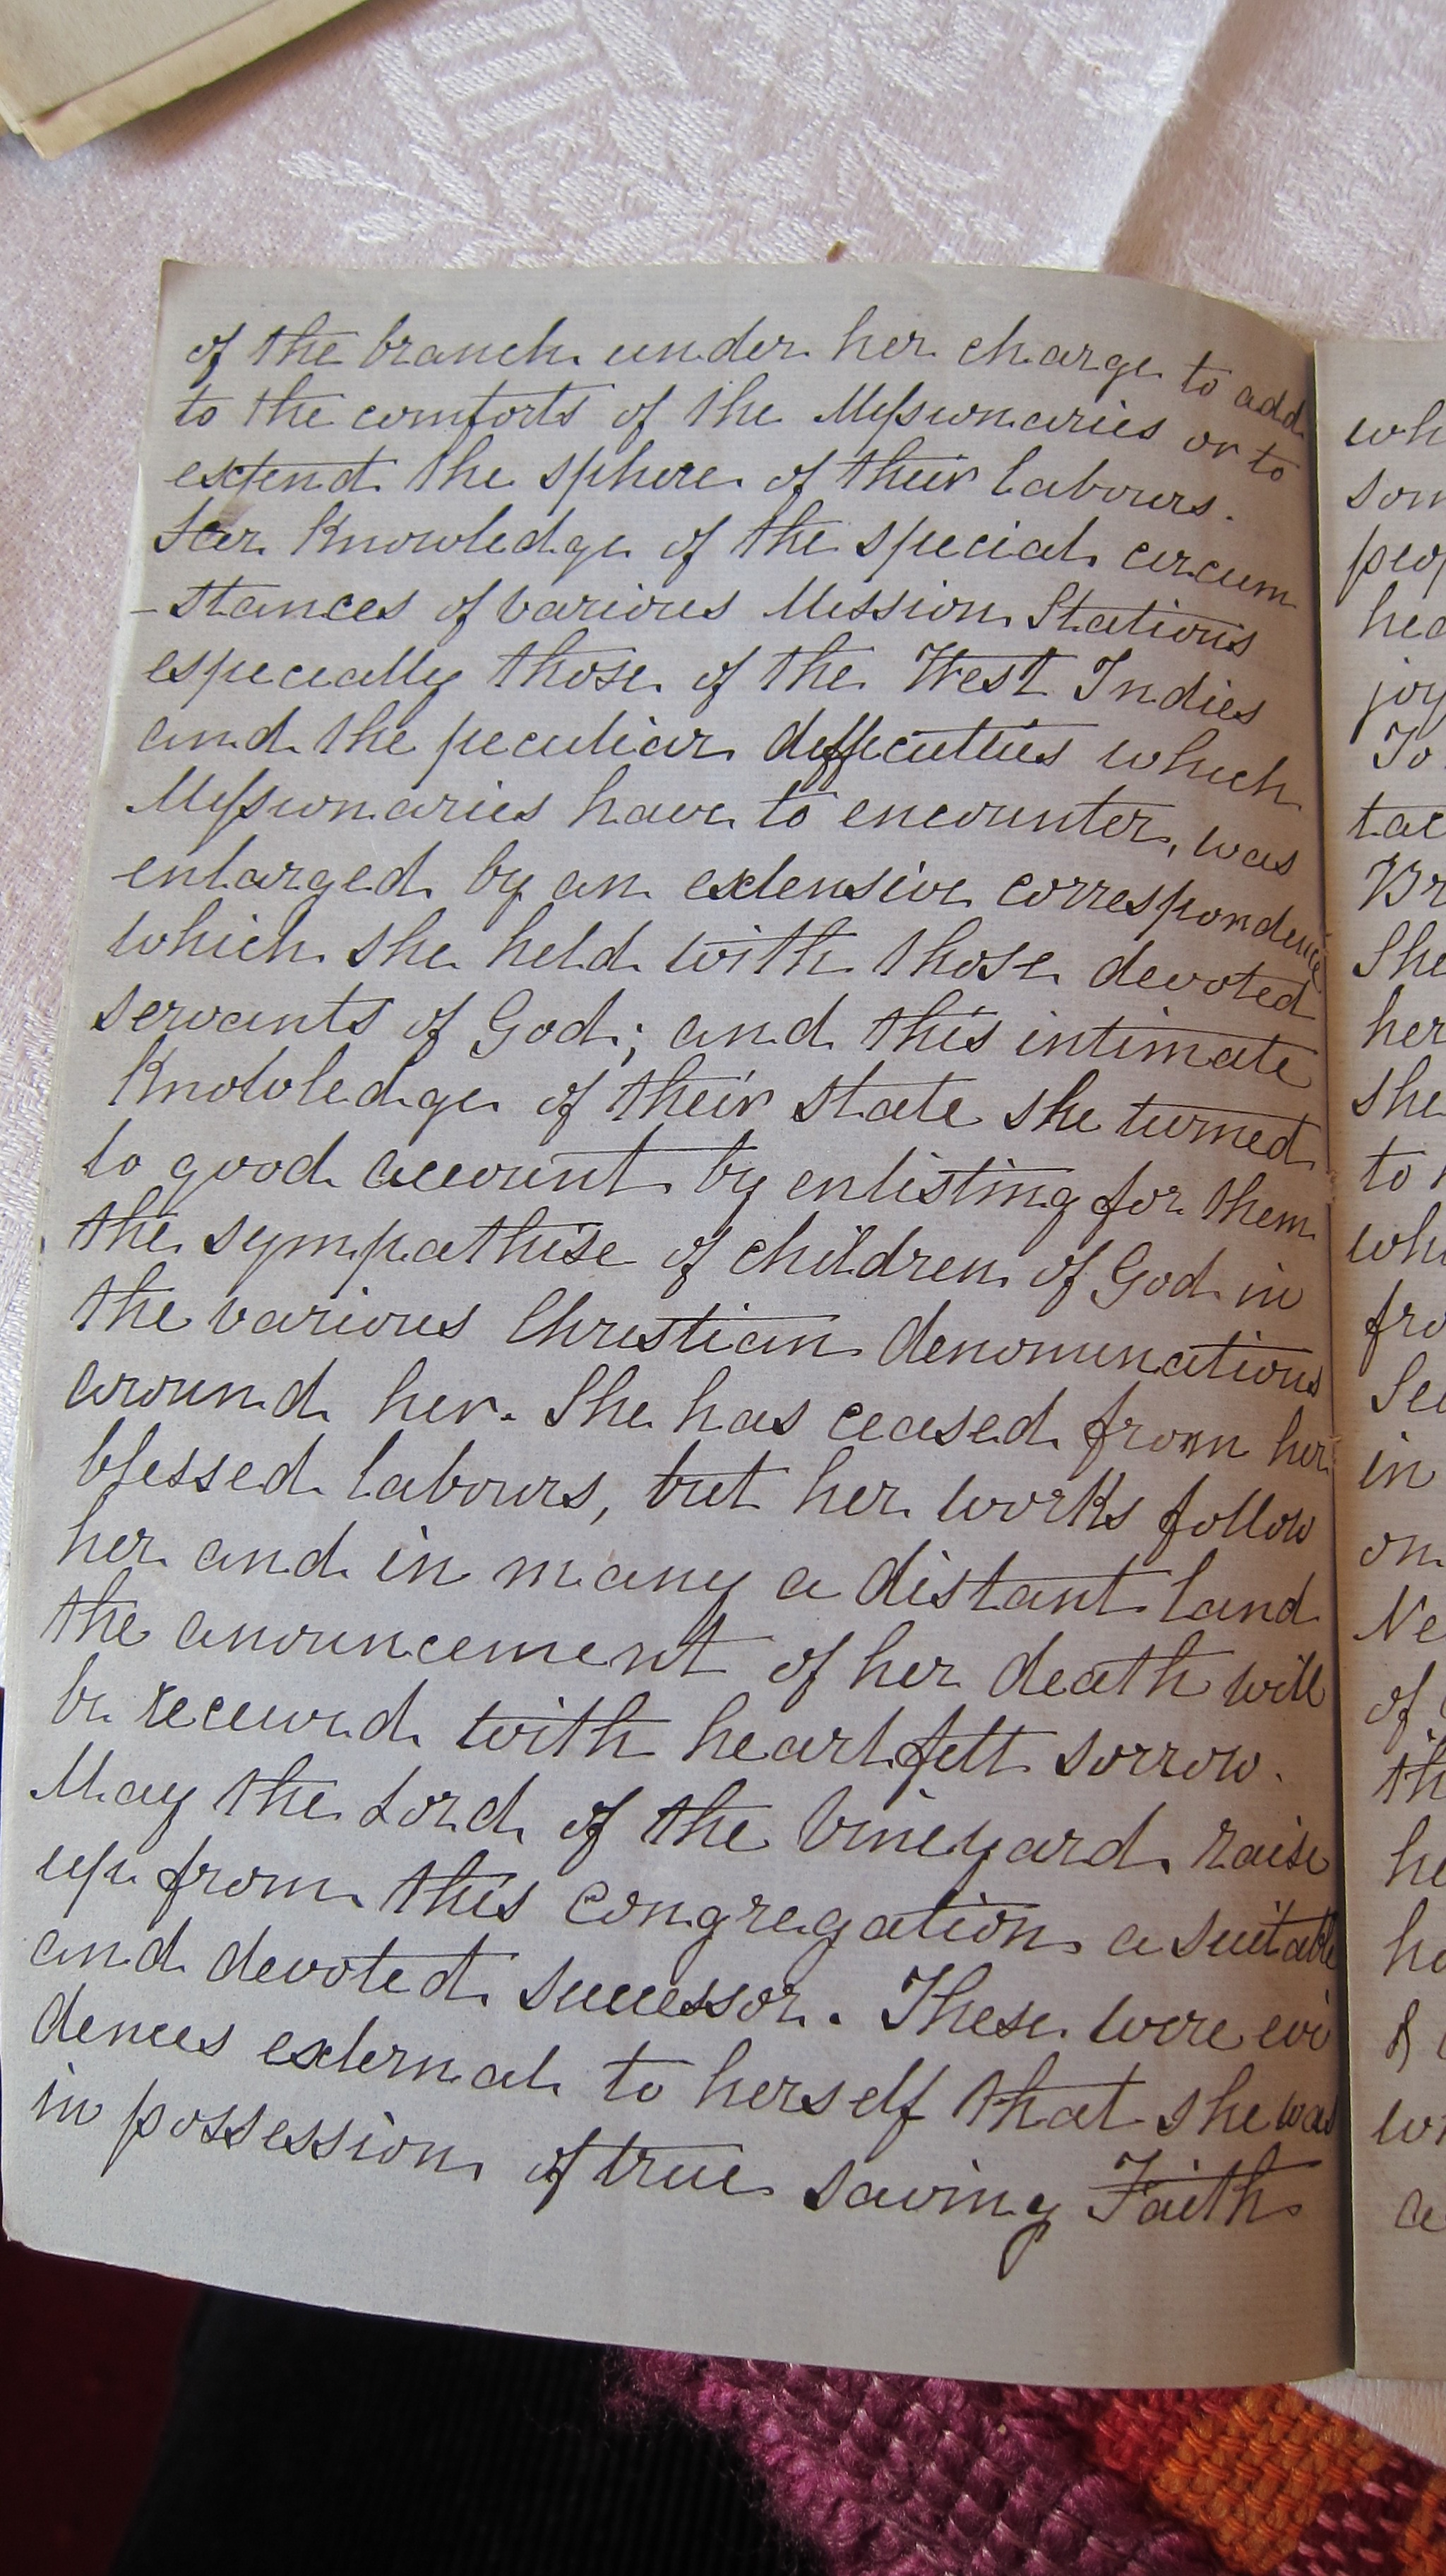 of the branch under her charge to add
to the comforts of the Missionaries or to
extend the sphere of their labours.
Her Knowledge of the special circum
-stances of various Mission Stations
especially those of the West Indies
and the peculiar difficulties which
Missionaries have to encounter, was
enlarged by an extensive correspondence
which she held with those devoted
servants of God; and this intimate
Knowledge of their state she turned
to good account by enlisting for them
the sympathise of children of God in
the various Christian denominations
around her. She has ceased from her
blessed labours, but her works follow
her and in many a distant land
the anouncement of her death will
be received with heartfelt sorrow.
May the Lord of the Vineyard raise
up from this congregation a suitable
and devoted successor. These were evi
dences external to herself that she was
in possession of true saving Faith
wh
som
peop
hea
joy
To
tac
Br
She
her
she
to
whi
fro
See
in
on
Ne
of
th
he
ha
&
wh
a